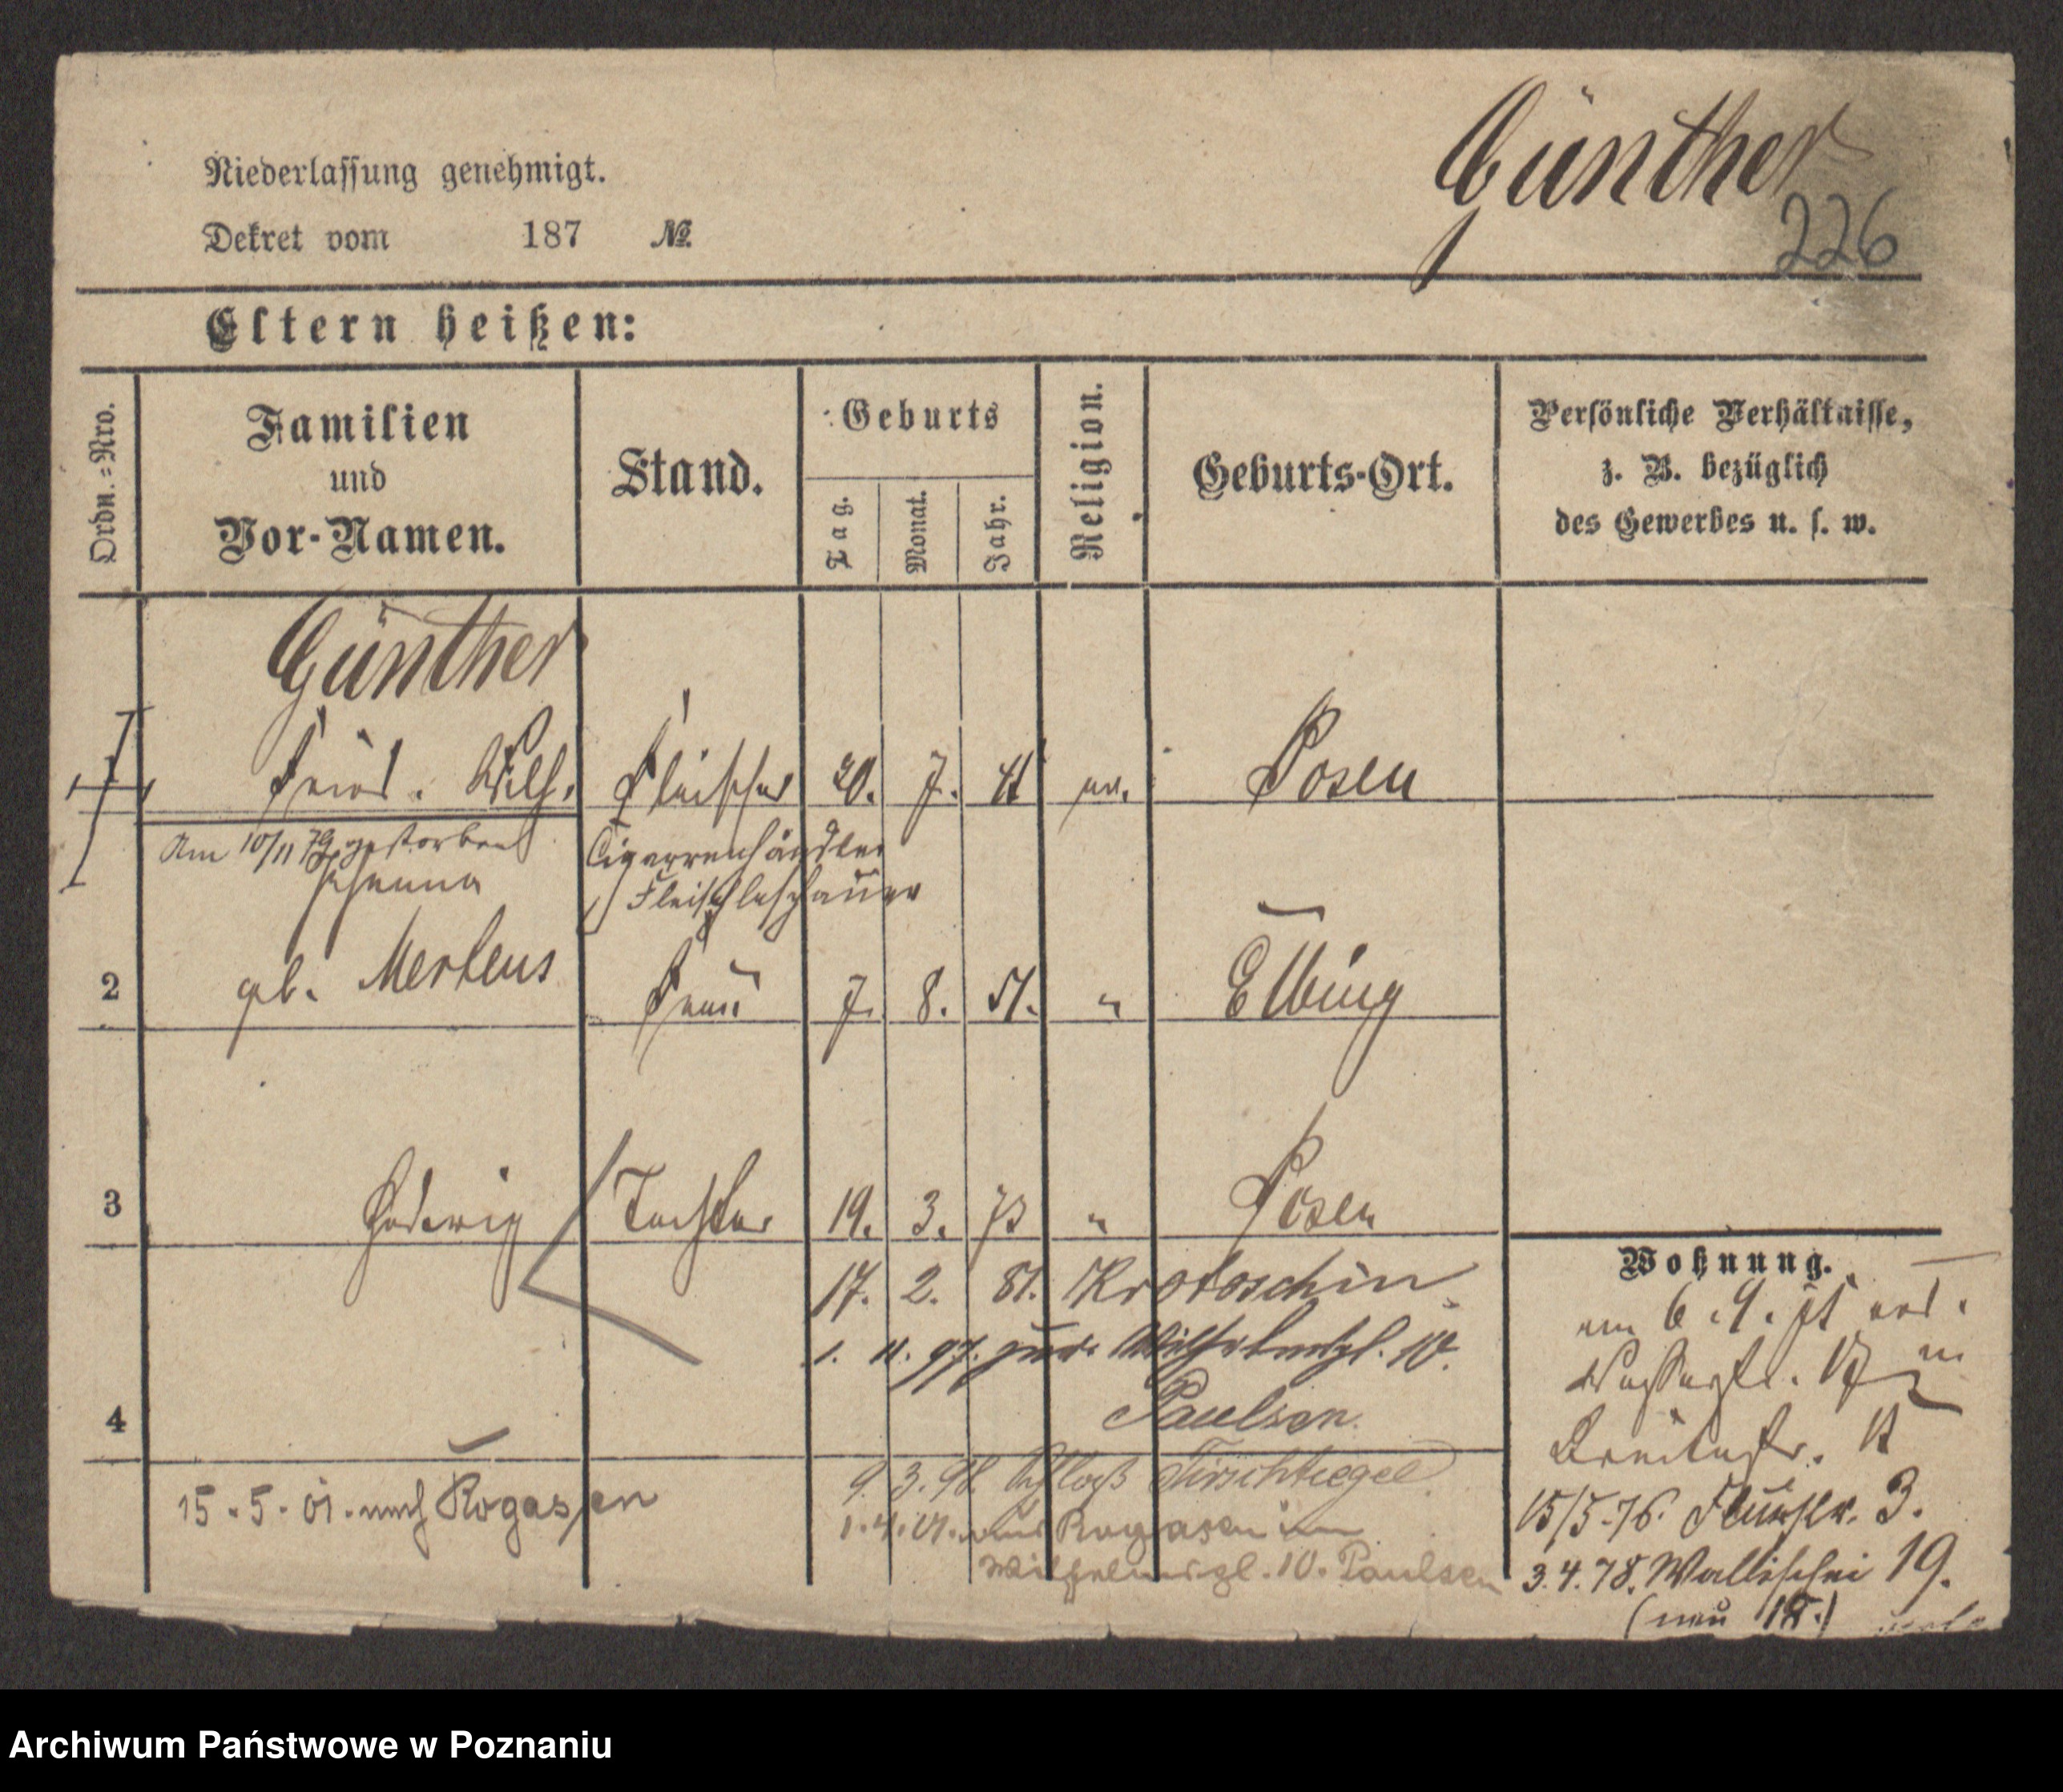 Günther
226
Niederlassung genehmigt.
Dekret vom 187 №
Eltern heißen:
Ordn.-Nro.
Familien
und
Vor-Namen.
Stand.
Geburts
Tag.
Monat.
Jahr.
Religion.
Geburts-Ort.
Persönliche Verhältnisse,
z. B. bezüglich
des Gewerbes u. s. w.
Günther
Fried. Wilh. Fleischer 20. 7. ev. Posen
Am 10/11 79 gestorben
Cigarrenhändler
Fleischbeschauer
Johanna
2 geb. Mertens Frau 7. 8. 51. " Elbing
3 Hedwig Tochter 19. 3. 73 " Posen
17. 2. 81. Krotoschin
1. 11. 97. Wilhelmspl. 10.
Paulsen.
4
9. 3. 98. Schloß Tirschtiegel.
15.5.01. nach Rogasen
1.4.01. aus Rogasen
Wilhelmspl. 10. Paulsen
Wohnung.
15/5.76. 3.
3.4.78. Wallischei 19.
(neu 12.)
Archiwum Państwowe w Poznaniu